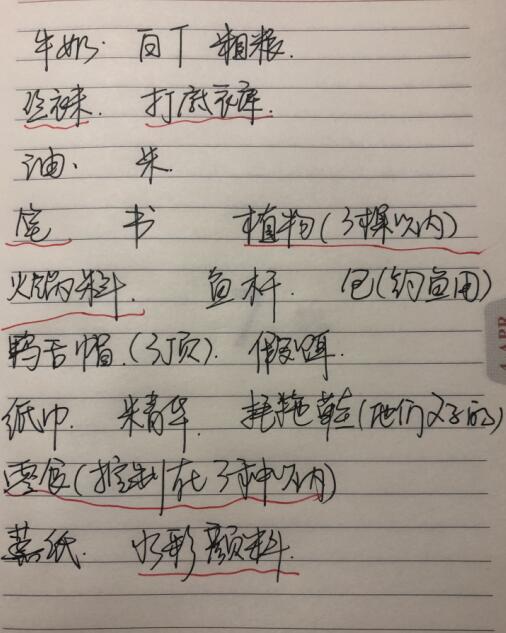 牛奶. 粗粮.
丝袜. 打底衣裤.
油、 米.
书 植物(3棵以内)
火锅料. 鱼杆. 包(钓鱼用)
鸭舌帽.(3顶). 假饵.
纸巾. 精华. 拖鞋(他们父子的)
零食(控制在3种以内)
纸. 水彩颜料.
APR